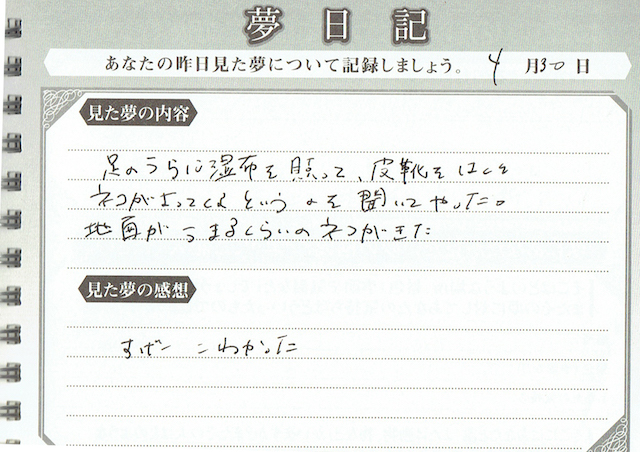 夢日記
あなたの昨日見た夢について記録しましょう。 4月30日
見た夢の内容
足のうらに湿布を貼って、皮靴をはくと
ネコがよってくるというのを聞いてやった。
地面がうまるくらいのネコがきた
見た夢の感想
すげー こわかった